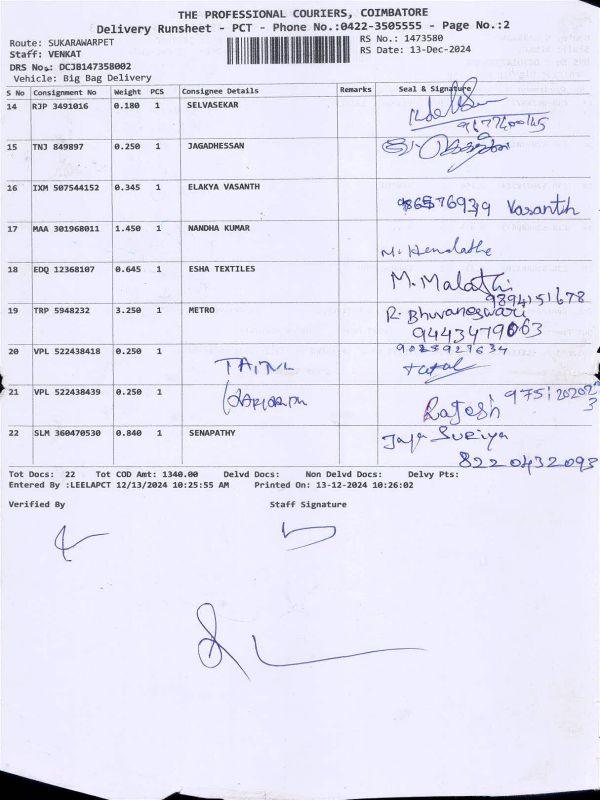 THE PROFESSIONAL COURIERS, COIMBATORE
Delivery Runsheet - PCT - Phone No.:0422-3505555 - Page No.:2
Route: SUKARAWARPET
RS No.: 1473580
Staff: VENKAT
RS Date: 13-Dec-2024
DRS No.: DCJB147358002
Vehicle: Big Bag Delivery
S No Consignment No Weight PCS Consignee Details Remarks Seal & Signature
14 RJP 3491016 0.180 1 SELVASEKAR
15 TNJ 849897 0.250 1 JAGADHESSAN
16 IXM 507544152 0.345 1 ELAKYA VASANTH Vasanth
17 MAA 301968011 1.450 1 NANDHA KUMAR
18 EDQ 12368107 0.645 1 ESHA TEXTILES M. Malathi
9894151678
19 TRP 5948232 3.250 1 METRO R. Bhuvaneswari
9443479063
20 VPL 522438418 0.250 1
21 VPL 522438439 0.250 1 Rajesh
22 SLM 360470530 0.840 1 SENAPATHY Jaya Suriya
8220432093
Tot Docs: 22 Tot COD Amt: 1340.00 Delvd Docs: Non Delvd Docs: Delvy Pts:
Entered By :LEELAPCT 12/13/2024 10:25:55 AM Printed On: 13-12-2024 10:26:02
Verified By Staff Signature